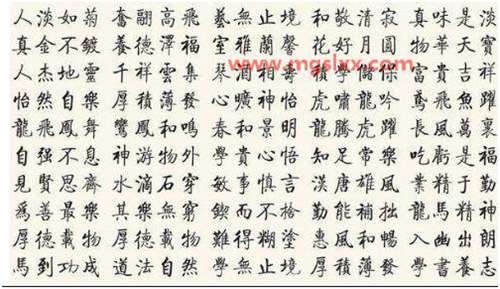 人淡如菊 奮翮高飛 藝無止境 和敬清寂 真味是淡
真金不鍍 養德澤福 室雅蘭馨 花好月圓 物華天寶
人杰地靈 千祥雲集 琴 學儲 富貴吉祥
www.mgslxx.com
怡然自樂 厚積薄發 心曠神怡 虎嘯龍吟 鳶飛魚躍
龍飛鳳舞 鸞鳳和鳴 春和景明 龍騰虎躍 長風萬裏
自强不息 神游物外 學貴心悟 知足常樂 吃虧是福
見賢思齊 水滴石穿 敏事慎言 漢唐雄風 業精于勤
為善最樂 其樂無窮 鍥而不捨 勤能補拙 龍馬精神
厚德載物 厚德載物 難得糊塗 惠風和暢 入幽出朗
馬到功成 道法自然 學無止境 厚積薄發 學書養志